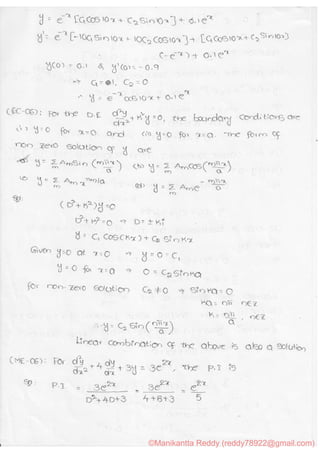 y = e^-x [C₁cos10x + C₂ sin10x] + 0.1e^x
y' = e^-x [-10C₁ sin10x + 10C₂ cos10x] + [C₁cos10x + C₂ sin10x]
(-e^-x) + 0.1e^x
y(0) = 0.1 & y'(0) = -0.9
→ C₁ = 0, C₂ = 0
∴ y = e^-x cos10x + 0.1e^x
(EC-06): For the D.E d²y/dx² + k²y = 0, the boundary conditions are
(i) y=0 for x=0 and (ii) y=0 for x=a. The form of
non zero solution of y are
(a) y = Σ_m A_m sin (mπx/a) (b) y = Σ_m A_m cos (mπx/a)
(c) y = Σ_m A_m x^mπ/a (d) y = Σ_m A_m e^-mπx/a
So:
(D²+k²)y = 0
D²+k²=0 → D = ±Ki
y = C₁ cos(Kx) + C₂ sin Kx
Given y=0 at x=0 → y=0=C₁
y=0 for x=a → 0 = C₂ sin Ka
For non-zero solution C₂ ≠ 0 → sin Ka = 0
Ka = nπ n∈Z
K = nπ/a, n∈Z
∴ y = C₂ sin (nπx/a)
Linear combination of the above is also a solution
(ME-06): For d²y/dx² + 4 dy/dx + 3y = 3e^2x, The P.I is
So: P.I = 3e^2x / D²+4D+3 = 3e^2x / 4+8+3 = e^2x / 5
©Manikantta Reddy (reddy78922@gmail.com)